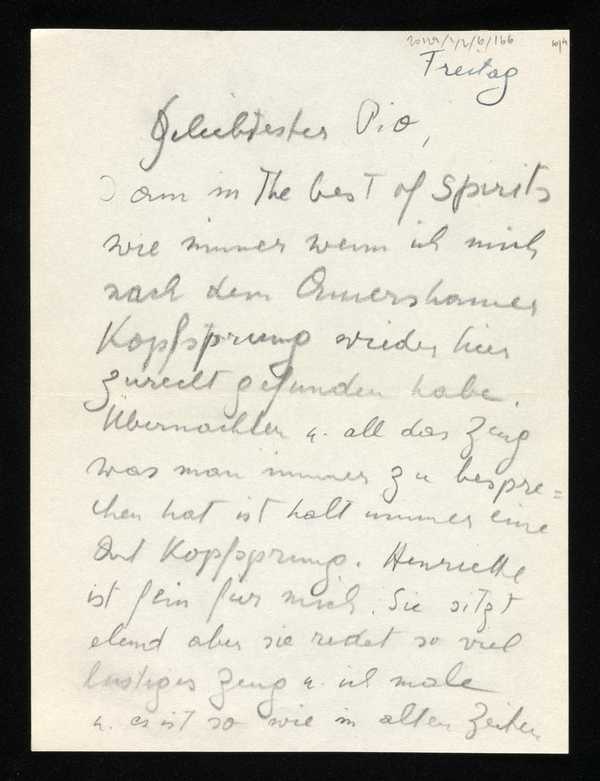 Freitag
Geliebtester Pio,
I am in The best of spirits
wie immer wenn ich mich
nach dem Amershamer
Kopfsprung wieder hier
zurecht gefunden habe.
Übernachten u. all das Zeug
was man immer zu bespre=
chen hat ist halt immer eine
Art Kopfsprung. Henriette
ist fein für mich. Sie sitzt
elend aber sie redet so viel
lustiges Zeug u. ich male
u. es ist so wie in alten Zeiten